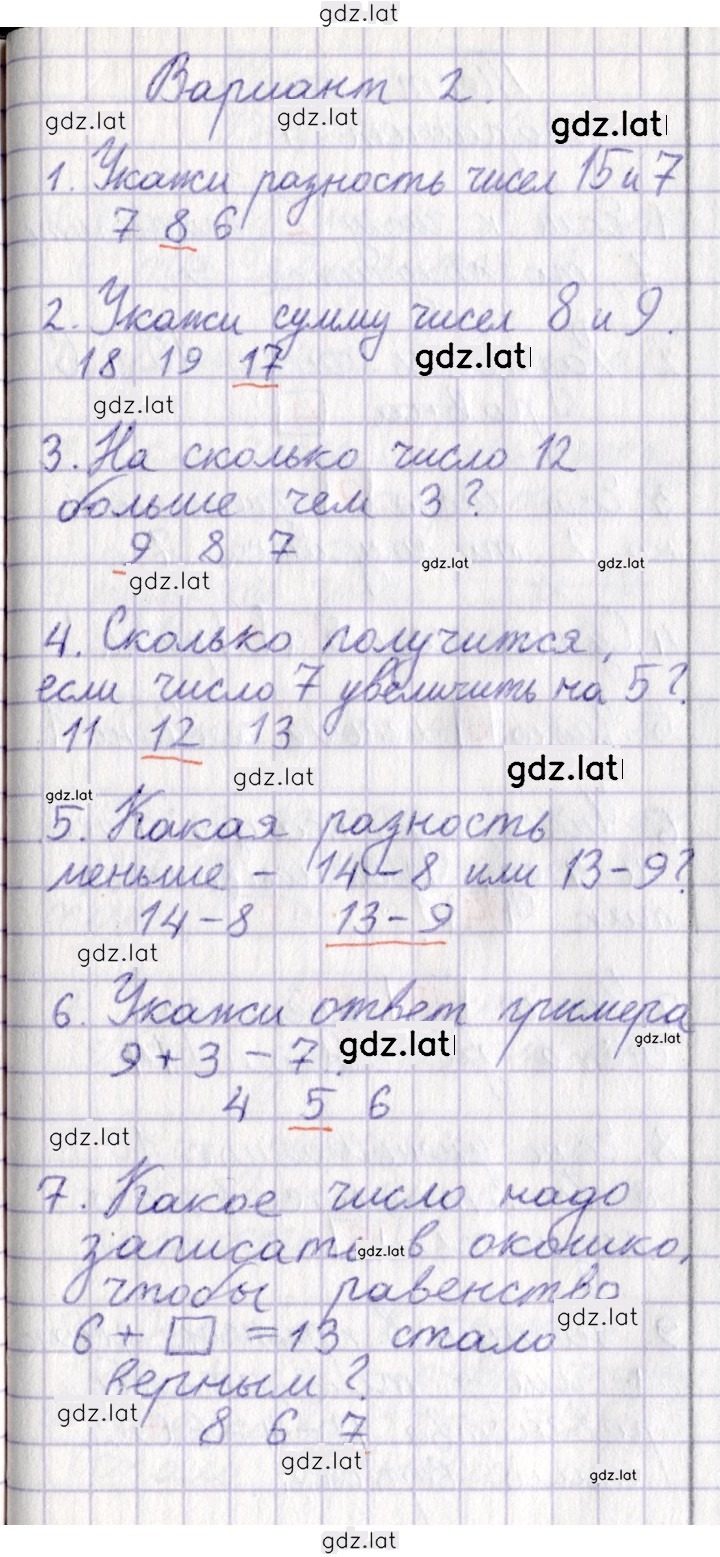 gdz.lat
Вариант 2.
gdz.lat gdz.lat gdz.lat
1. Укажи разность чисел 15 и 7
7 8 6
2. Укажи сумму чисел 8 и 9.
18 19 17 gdz.lat
gdz.lat
3. На сколько число 12
больше чем 3?
9 8 7
gdz.lat gdz.lat gdz.lat
4. Сколько получится,
если число 7 увеличить на 5?
11 12 13
gdz.lat gdz.lat
gdz.lat
5. Какая разность
меньше - 14-8 или 13-9?
14-8 13-9
gdz.lat
6. Укажи ответ примера
9+3-7. gdz.lat gdz.lat
4 5 6
gdz.lat
7. Какое число надо
записать gdz.lat в окошко,
чтобы равенство
6 + □ = 13 стало gdz.lat
верным?
gdz.lat
8 6 7
gdz.lat
gdz.lat
gdz.lat